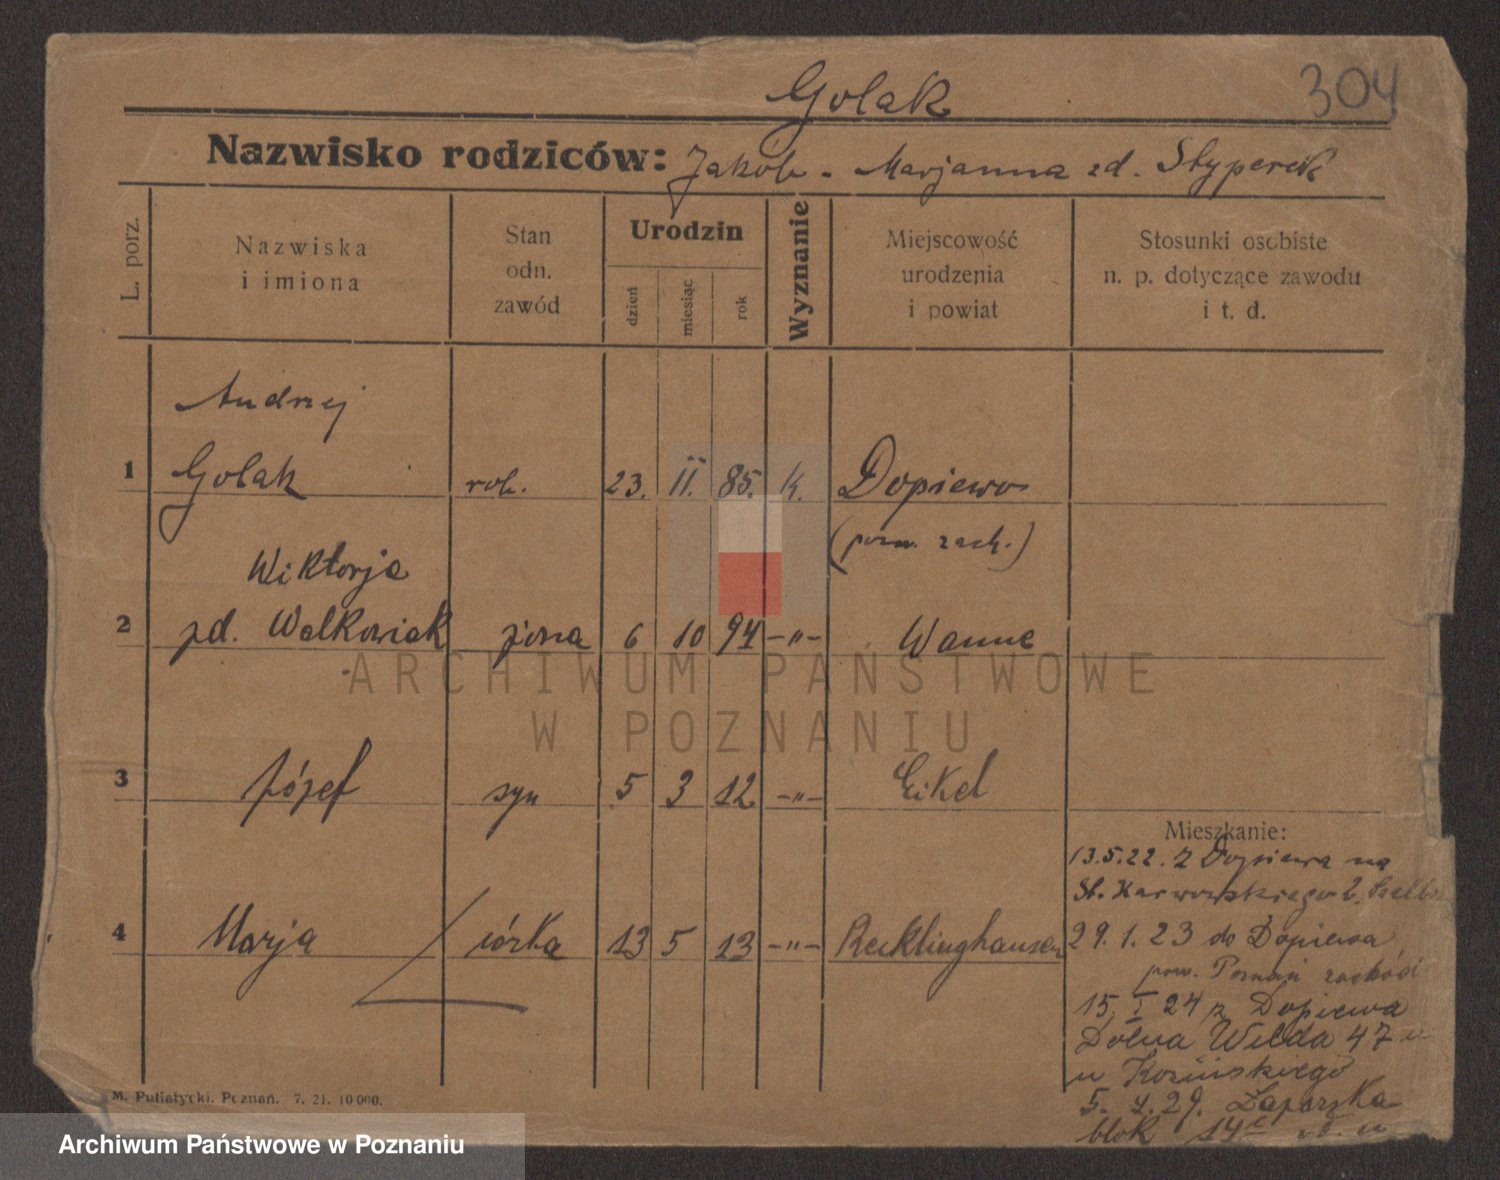 Golak
304
Nazwisko rodziców: Jakób - Marjanna zd. Styperek
L. porz.
Nazwiska
i imiona
Stan
odn.
zawód
Urodzin
dzień
miesiąc
rok
Wyznanie
Miejscowość
urodzenia
i powiat
Stosunki osobiste
n. p. dotyczące zawodu
i t. d.
Andrzej
1 Golak rob. 23. II. 85. k. Dopiewo
(pozn. zach.)
Wiktorja
2 zd. Walkowiak żona 6 10 94 -"- Wanne
3 Józef syn 5 3 12 -"- Eikel
4 Marja córka 13 5 13 -"- Recklinghausen
Mieszkanie:
13.5.22. z Dopiewa na
Sł. Karwowskiego 2.
29.1.23 do Dopiewa
pow. Poznań zachód
15. I 24 z Dopiewa
Dolna Wilda 47
u Kozińskiego
5. 4. 29. Łazarska
blok 14
M. Putiatycki. Poznań. 7. 21. 10 000.
ARCHIWUM PAŃSTWOWE
W POZNANIU
Archiwum Państwowe w Poznaniu